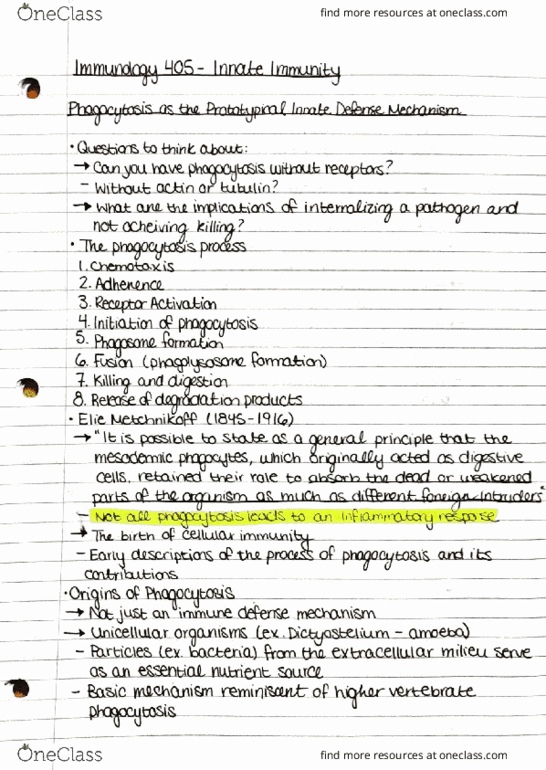 OneClass
find more resources at oneclass.com
Immunology 405 - Innate Immunity
Phagocytosis as the Prototypical Innate Defense Mechanism
• Questions to think about:
→ Can you have phagocytosis without receptors?
- Without actin or tubulin?
→ What are the implications of internalizing a pathogen and
not acheiving killing?
• The phagocytosis process
1. Chemotaxis
2. Adherence
3. Receptor Activation
4. Initiation of phagocytosis
5. Phagosome formation
6. Fusion (phagolysosome formation)
7. Killing and digestion
8. Release of degradation products
• Elie Metchnikoff (1845-1916)
→ "It is possible to state as a general principle that the
mesodermic phagocytes, which originally acted as digestive
cells, retained their role to absorb the dead or weakened
parts of the organism as much as different foreign intruders"
- Not all phagocytosis leads to an inflammatory response
→ The birth of cellular immunity
- Early descriptions of the process of phagocytosis and its
contributions
• Origins of Phagocytosis
→ Not just an immune defense mechanism
→ Unicellular organisms (ex. Dictyostelium - amoeba)
- Particles (ex. bacteria) from the extracellular milieu serve
as an essential nutrient source
- Basic mechanism reminisent of higher vertebrate
phagocytosis
OneClass
find more resources at oneclass.com